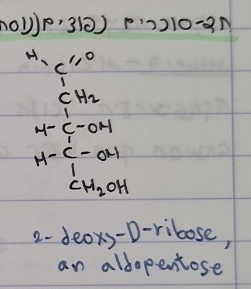 H O
C
CH2
H-C-OH
H-C-OH
CH2OH
2-deoxy-D-ribose,
an aldopentose